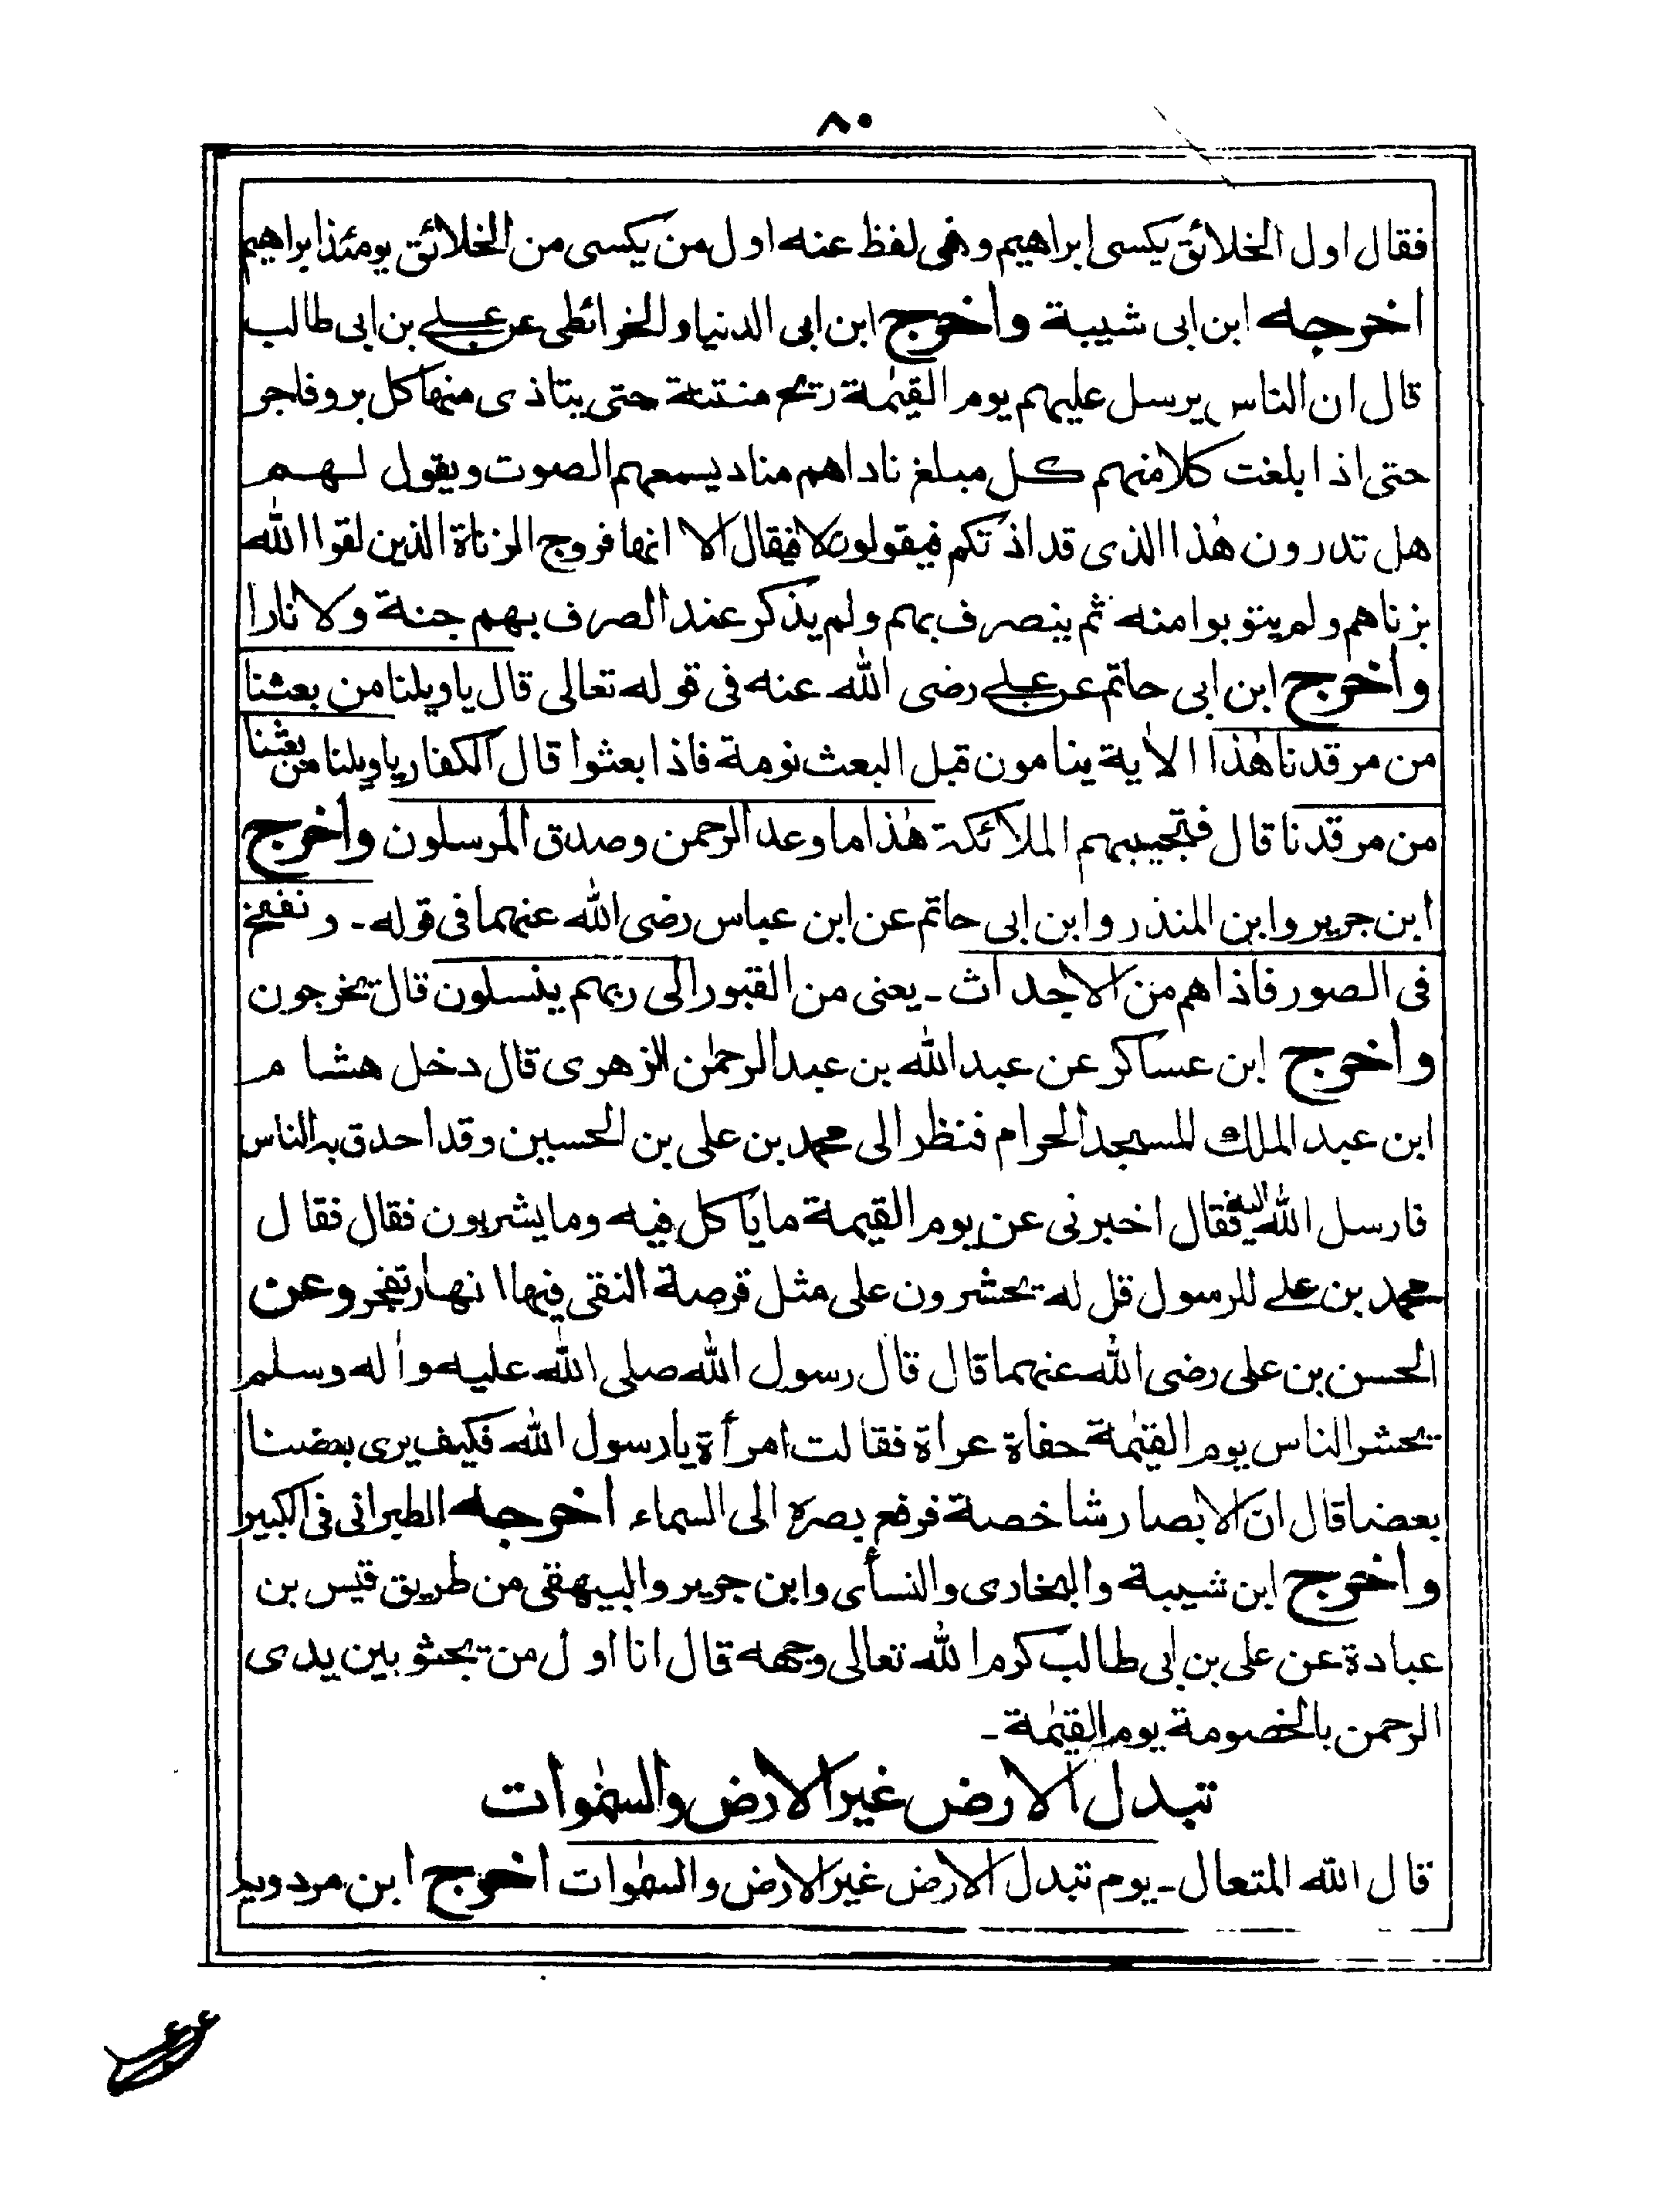 ٨٠
فقال اول الخلائق يكسى ابراهيم وفى لفظ عنه اول من يكسى من الخلائق يومئذ ابراهيم
اخرجه ابن ابى شيبة واخرج ابن ابى الدنيا والخرائطى عن على بن ابى طالب
قال ان الناس يرسل عليهم يوم القيٰمة ريح منتنة حتى يتاذى منها كل بر وفاجر
حتى اذا بلغت كلا منهم كل مبلغ ناداهم مناد يسمعهم الصوت ويقول لهم
هل تدرون هٰذا الذى قد اذتكم فيقولون لا فيقال الا انها فروج الزناة الذين لقوا الله
بزناهم ولم يتوبوا منه ثم ينصرف بهم ولم يذكر عند الصرف بهم جنة ولا نارا
واخرج ابن ابى حاتم عن على رضى الله عنه فى قوله تعالى قال ياويلنا من بعثنا
من مرقدنا هٰذا الأية ينامون قبل البعث نومة فاذا بعثوا قال الكفار ياويلنا من بعثنا
من مرقدنا قال فتجيبهم الملائكة هٰذا ما وعد الرحمن وصدق المرسلون واخرج
ابن جرير وابن المنذر وابن ابى حاتم عن ابن عباس رضى الله عنهما فى قوله ۔ ونفخ
فى الصور فاذا هم من الاجداث ۔ يعنى من القبور الى ربهم ينسلون قال يخرجون
واخرج ابن عساكر عن عبد الله بن عبد الرحمٰن الزهرى قال دخل هشام
ابن عبد الملك المسجد الحرام فنظر الى محمد بن على بن الحسين وقد احدق به الناس
فارسل الله اليه فقال اخبرنى عن يوم القيمة ما ياكل فيه وما يشربون فقال فقال
محمد بن على للرسول قل له يحشرون على مثل قرصة النقى فيها انهار تفجر وعن
الحسن بن على رضى الله عنهما قال قال رسول الله صلى الله عليه وأله وسلم
يحشر الناس يوم القيٰمة حفاة عراة فقالت امرأة يا رسول الله فكيف يرى بعضنا
بعضا قال ان الابصار شاخصة فرفع بصره الى السماء اخرجه الطبرانى فى الكبير
واخرج ابن شيبة والبخارى والنسأى وابن جرير والبيهقى من طريق قيس بن
عبادة عن على بن ابى طالب كرم الله تعالى وجهه قال انا اول من يجثو بين يدى
الرحمن بالخصومة يوم القيٰمة ۔
تبدل الارض غير الارض والسمٰوات
قال الله المتعال ۔ يوم تبدل الارض غير الارض والسمٰوات اخرج ابن مردويه